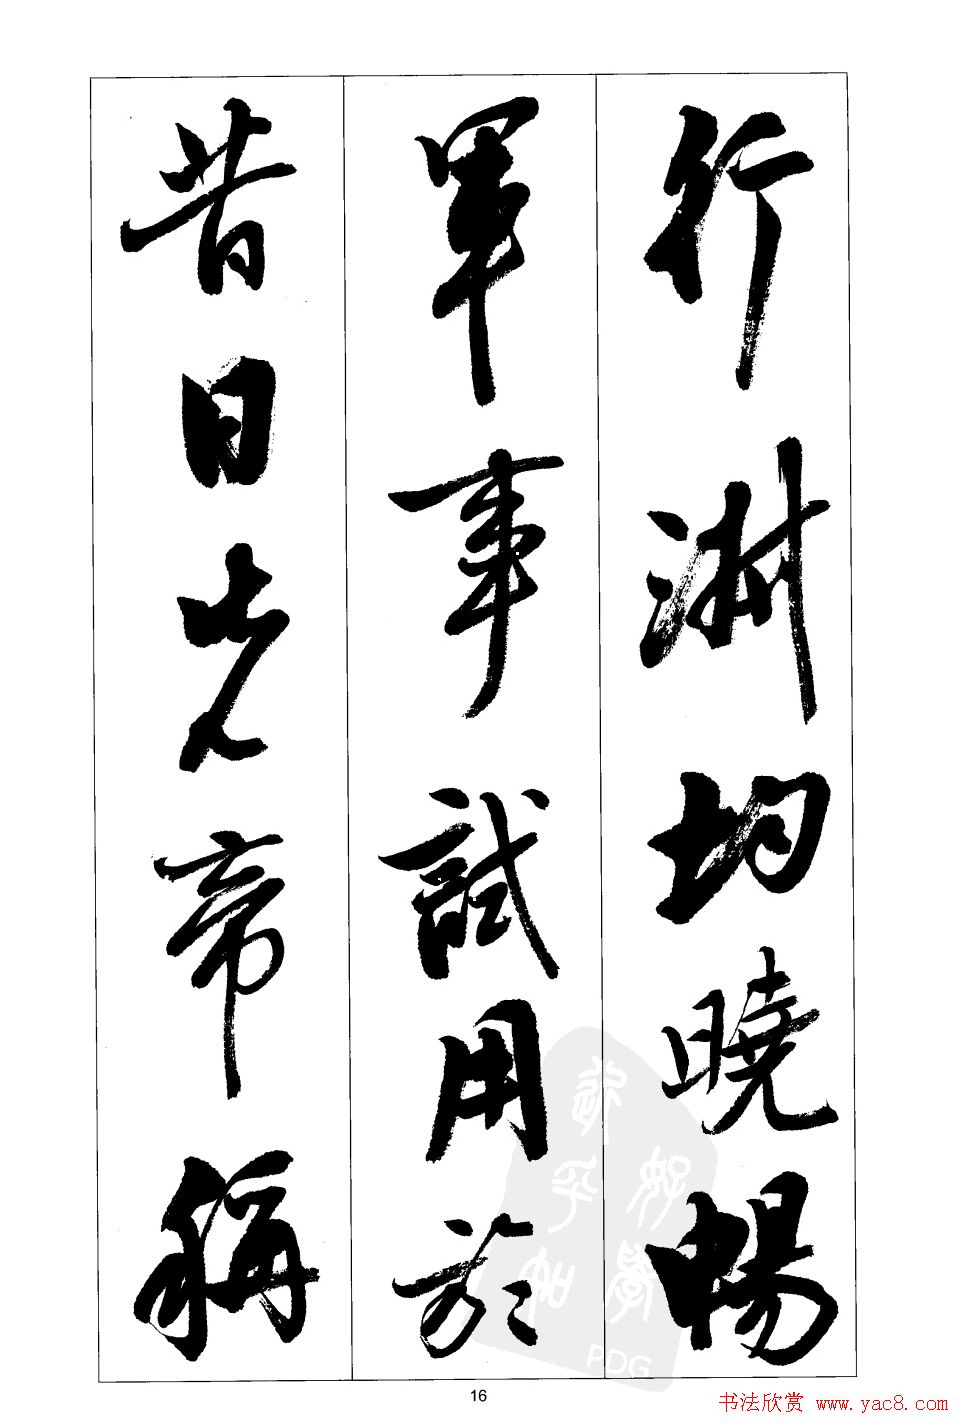 行淑均曉暢
軍事試用於
昔日先帝稱
16
PDG
书法欣赏 www.yac8.com